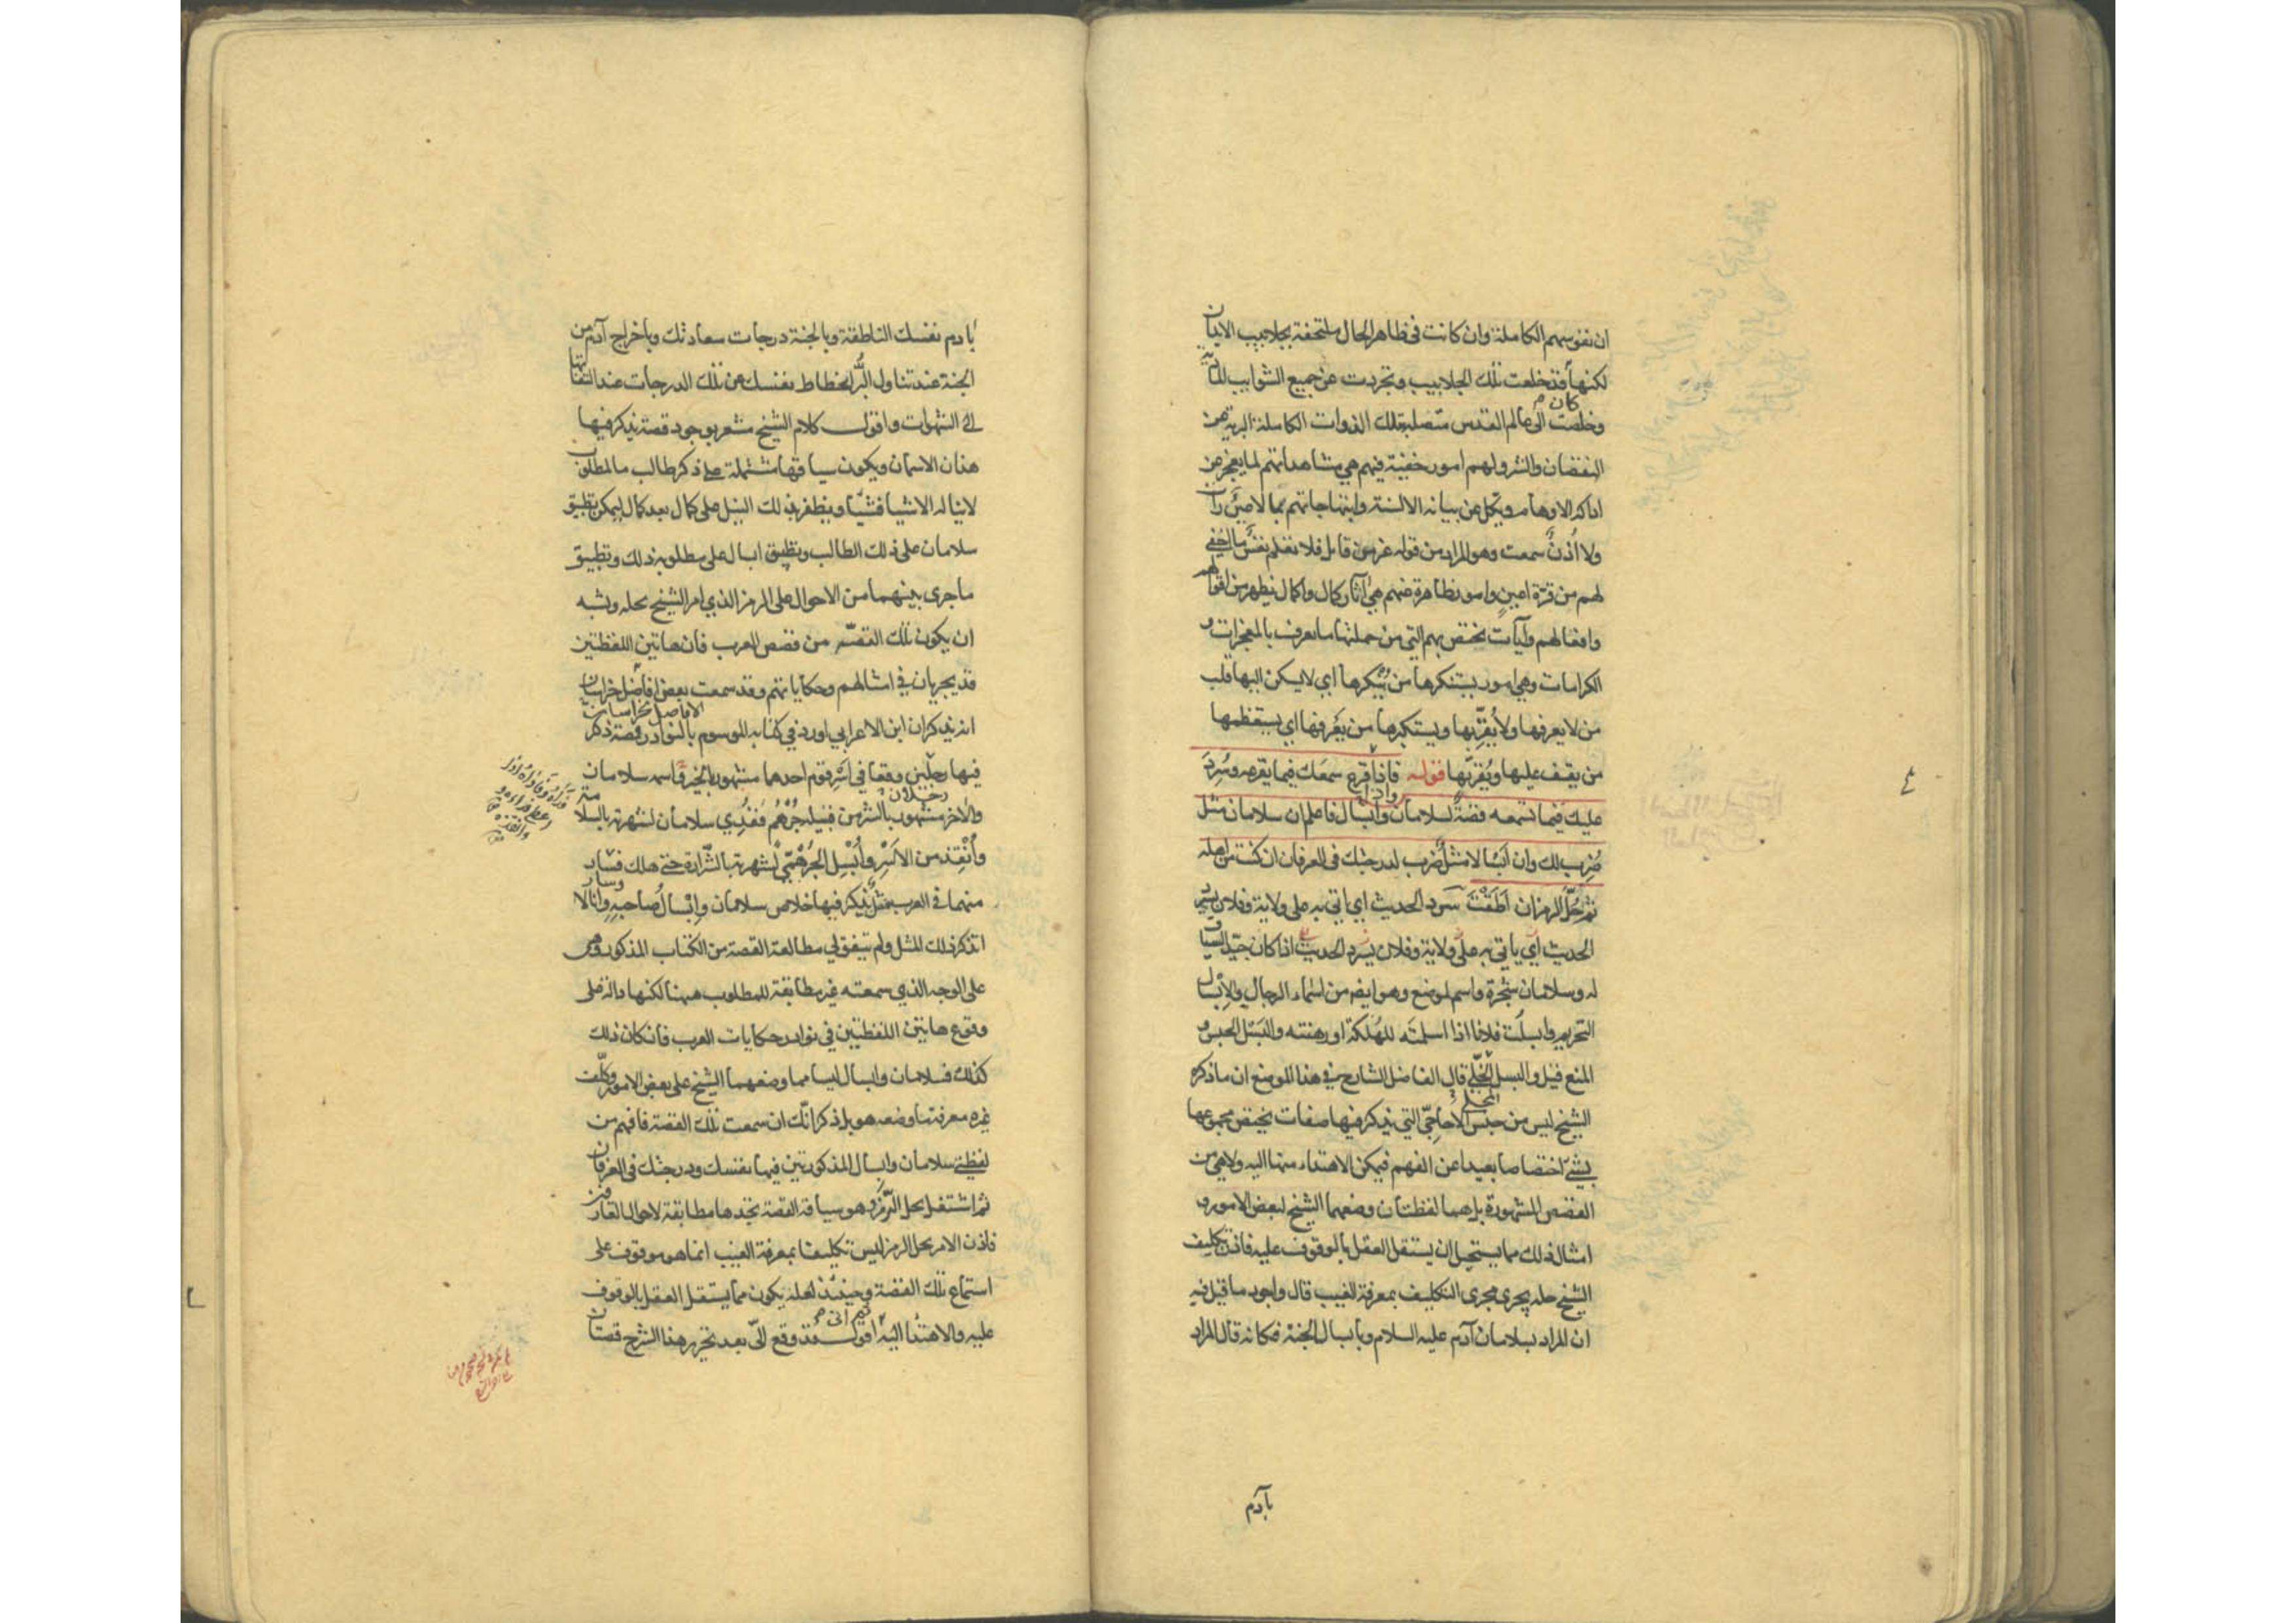 ان نفوسهم الكاملة وان كانت في ظاهر الحال ملتحفة بجلابيب الابدان
لكنها قد خلعت تلك الجلابيب وتجردت عن جميع الشوايب المادية
كان م
وخلصت الى عالم القدس متصلة بتلك الذوات الكاملة البرية من
النقصان والشر ولهم امور خفية فيهم هي مشاهداتهم لما يعجز عن
ادراكه الاوهام ويكل عن بيانه الالسنة وابتهاجاتهم بما لا عين رأت
ولا اُذن سمعت وهو المراد من قوله عز من قايل فلا تعلم نفس ما اخفي
لهم من قرة اعين وامور ظاهرة عنهم هي آثار كمال واكمال يظهر من اقوالهم
وافعالهم وآيات يختص بهم التي من جملتها ما يعرف بالمعجزات و
الكرامات وهي امور يستنكرها من يُنكرها اي لا يسكن اليها قلب
من لا يعرفها ولا يُقِرّ بها ويستكبرها من يَعرفها اي يستعظمها
من يقف عليها ويُقرّ بها قوله فاذا قرع سمعك فيما يقرعه وسُرِدَ
واذا
عليك فيما تسمعه قصةٌ لسلامان وابسال فاعلم ان سلامان مثل
ضُرِب لك وان ابسالا مثلٌ ضرب لدرجتك في العرفان ان كنت من اهله
ثم حُلّ الرمز ان اَطَقْتَ سرد الحديث اي اتى به على ولاية وفلان يسرد
الحديث اي ياتي به على ولاية وفلان يسرد الحديث اذا كان جيّد السياق
له وسلامان شجرة واسم لموضع وهو ايضا من اسماء الرجال والاِبْسال
التحريم وابسلت فلانا اذا اسلمته للهُلَكة او رهنته والبَسْل الحبس و
المنع قيل والبسل المُخَلّى قال الفاضل الشارح في هذا الموضع ان ما ذكره
المخلى
الشيخ ليس من جنس الاحاجيّ التي يذكر فيها صفات يختص مجموعها
بشيٍ اختصاصا بعيدا عن الفهم فيمكن الاهتداء منها اليه ولا هي من
القصص المشهورة بل هما لفظتان وضعهما الشيخ لبعض الامور و
امثال ذلك مما يستحيل ان يستقل العقل بالوقوف عليه فاذن تكليف
الشيخ حله يجري مجرى التكليف بمعرفة الغيب قال واجود ما قيل فيه
ان المراد بسلامان آدم عليه السلام وبابسال الجنة فكانه قال المراد
بآدم
بادم نفسك الناطقة وبالجنة درجات سعادتك وباخراج آدم من
الجنة عند تناول البُرّ انحطاط نفسك عن تلك الدرجات عند التفاتها
الى الشهوات واقول كلام الشيخ مشعر بوجود قصة يذكر فيها
هذان الاسمان ويكون سياقها مشتملة على ذكر طالب ما لمطلوب
لا يناله الا شيا فشيا ويظفر بذلك النيل على كمال بعد كمال ليمكن تطبيق
سلامان على ذلك الطالب وتطبيق ابسال على مطلوبه ذلك وتطبيق
ما جرى بينهما من الاحوال على الرمز الذي امر الشيخ بحله ويشبه
ان يكون تلك القصّه من قصص العرب فان هاتين اللفظتين
قد يجريان في امثالهم وحكاياتهم وقد سمعت بعض افاضل خراسان
الافاضل بخراسان
انه يذكر ان ابن الاعرابي اورد في كتابه الموسوم بالنوادر قصة ذكر
فيها رجلين وقعا في اَسْر قوم احدهما مشهور بالخير واسمه سلامان
رجلان
والآخر مشهور بالشر من قبيلة جُرْهُم فَفُدِي سلامان لشهرته بالسلامة
وأُنْقِذ من الاَسْر وأُبْسِل الجُرْهُمي لشهرته بالشّرارة حتى هلك فسار
وسار
منهما في العرب مثل يذكر فيها خلاص سلامان وابسال صاحبه وانا لا
اتذكر ذلك المثل ولم يتفق لي مطالعة القصة من الكتاب المذكور وهي
على الوجه الذي سمعته غير مطابقة للمطلوب ههنا لكنها دالة على
وقوع هاتين اللفظتين في نوادر حكايات العرب فان كان ذلك
كذلك فسلامان وابسال ليسا مما وضعهما الشيخ على بعض الامور وكلّف
غيره معرفة ما وضعه هو بل ذكر انّك ان سمعت تلك القصة فافهم من
لفظتي سلامان وابسال المذكورتين فيها نفسك ودرجتك في العرفان
ثم اشتغل بحل الرّمز وهو سياقة القصة تجدها مطابقة لاحوال العارفين
فاذن الامر بحل الرمز ليس تكليفا بمعرفة الغيب انما هو موقوف على
استماع تلك القصة وحينئذ لعله يكون مما يستقل العقل بالوقوف
عليه والاهتداء اليه اقول قد وقع اليّ بعد تحرير هذا الشرح قصتان